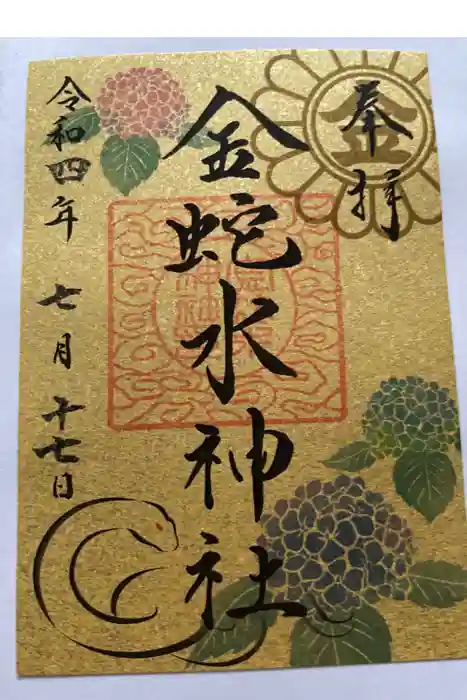 奉拝
金
金蛇水神社
令和四年 七月十七日